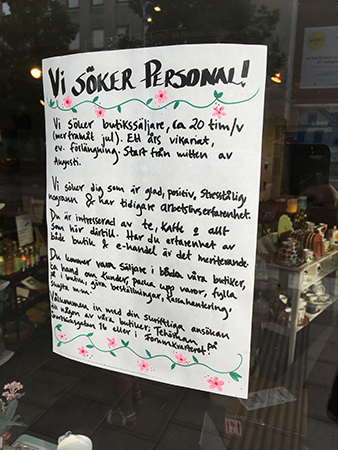 Vi SÖKER PERSONAL!
Vi söker butikssäljare, ca 20 tim/v
(mer framåt jul). Ett års vikariat,
ev. förlängning. Start från mitten av
Augusti.
Vi söker dig som är glad, positiv, stresstålig
noggrann & har tidigare arbetslivserfarenhet.
Du är intresserad av te, kaffe & allt
som hör därtill. Har du erfarenhet av
både butik & e-handel är det meriterande.
Du kommer vara säljare i båda våra butiker,
ta hand om kunder, packa upp varor, fylla
på i butik, göra beställningar, kassahantering,
skylta m.m.
Välkommen in med din skriftliga ansökan
till någon av våra butiker; Tehörnan på
Svartbäcksgatan 16 eller i Forumkvarteret.